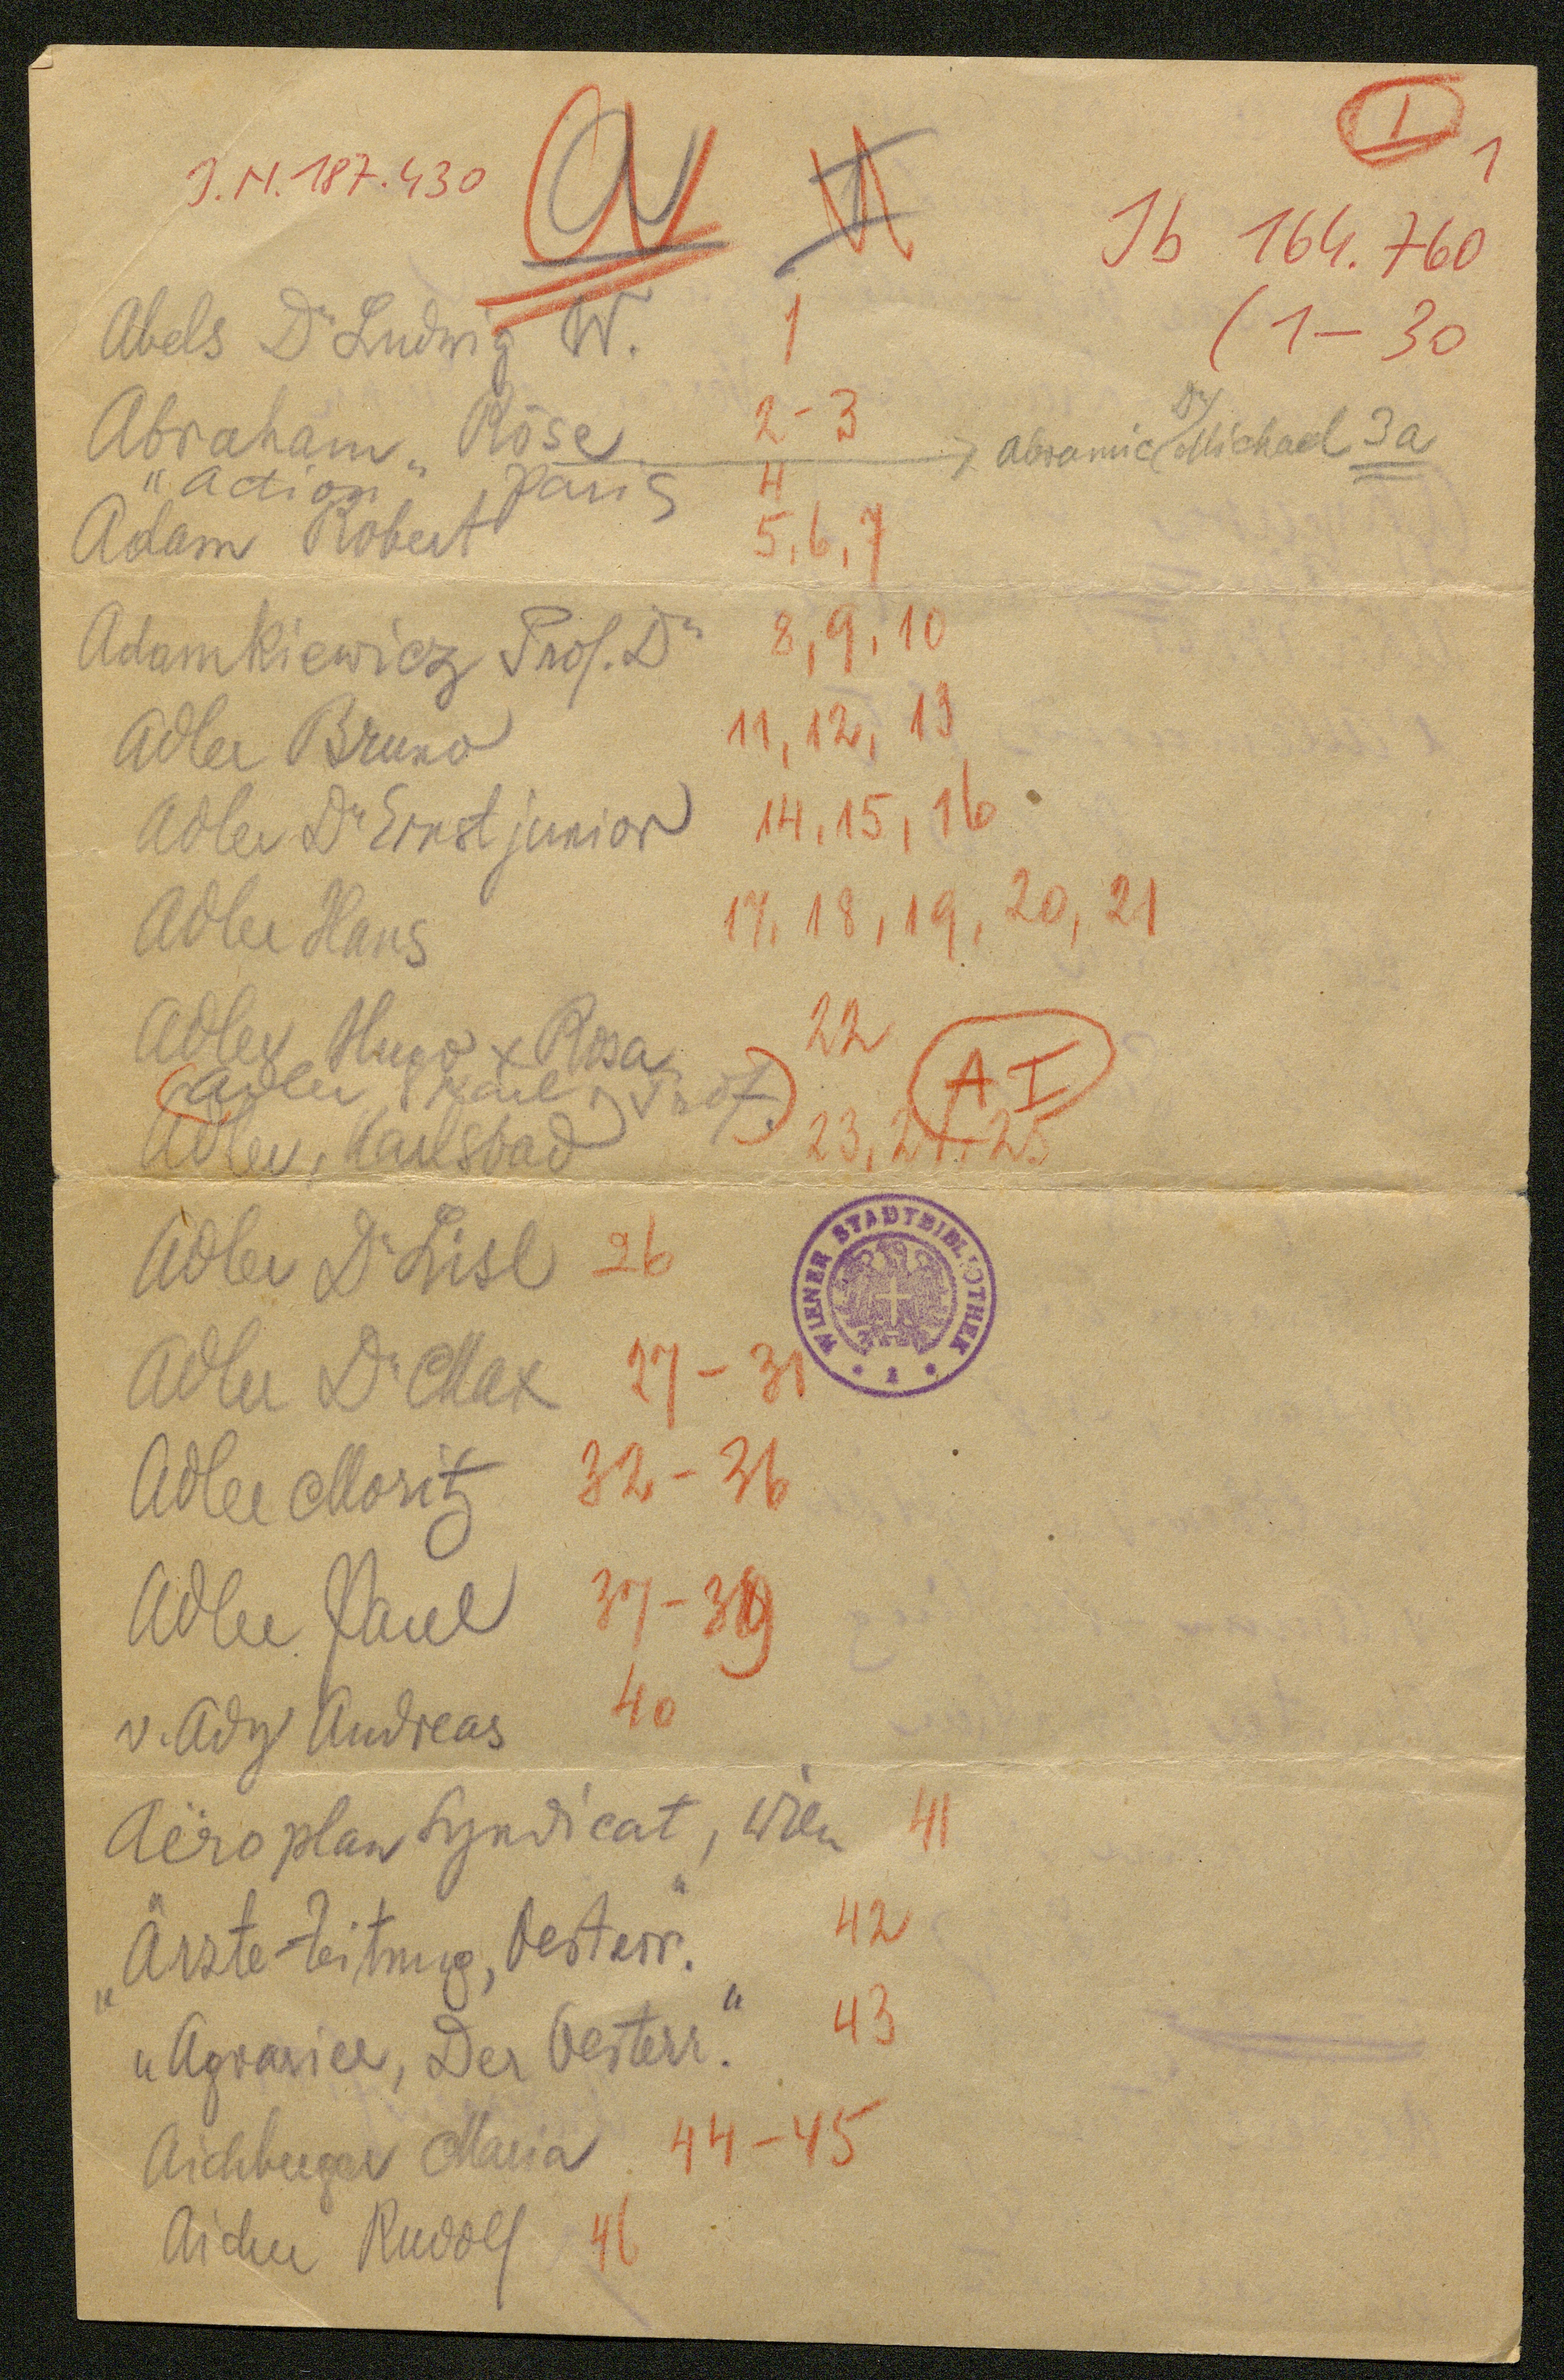 I 1
J.N. 187.430
A I
Jb 164.760
(1-30
Abels Dr Ludwig W. 1
Abraham Röse 2-3 → Abramic Dr Michael 3a
"Action" Paris 4
Adam Robert 5, 6, 7
Adamkiewicz Prof. Dr 8, 9, 10
Adler Bruno 11, 12, 13
Adler Dr Ernst junior 14, 15, 16
Adler Hans 17, 18, 19, 20, 21
Adler Hugo x Rosa 22
(Adler Karl, Prof.) A I
Adler, Karlsbad 23, 24, 25
Adler Dr Lisl 26
WIENER STADTBIBLIOTHEK
Adler Dr Max 27-31
Adler Moritz 32-36
Adler Paul 37-39
v. Ady Andreas 40
Aëroplan Syndicat, Wien 41
„Ärzte-Zeitung, Oesterr." 42
„Agrarier, Der Oesterr." 43
Aichberger Maria 44-45
Aicher Rudolf 46